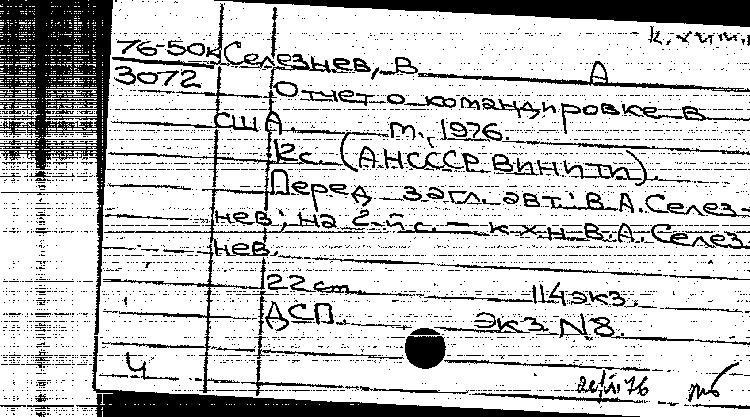 к. хим.н
76-50к Селезнев, В. А
3072 Отчет о командировке в
США. М., 1976.
12с. (АН СССР. ВИНИТИ).
Перед загл. авт.: В.А. Селез-
нев; на 2-й с. — к х н В.А. Селез-
нев.
22 cm. 114 экз.
ДСП. Экз. N 8.
Ч